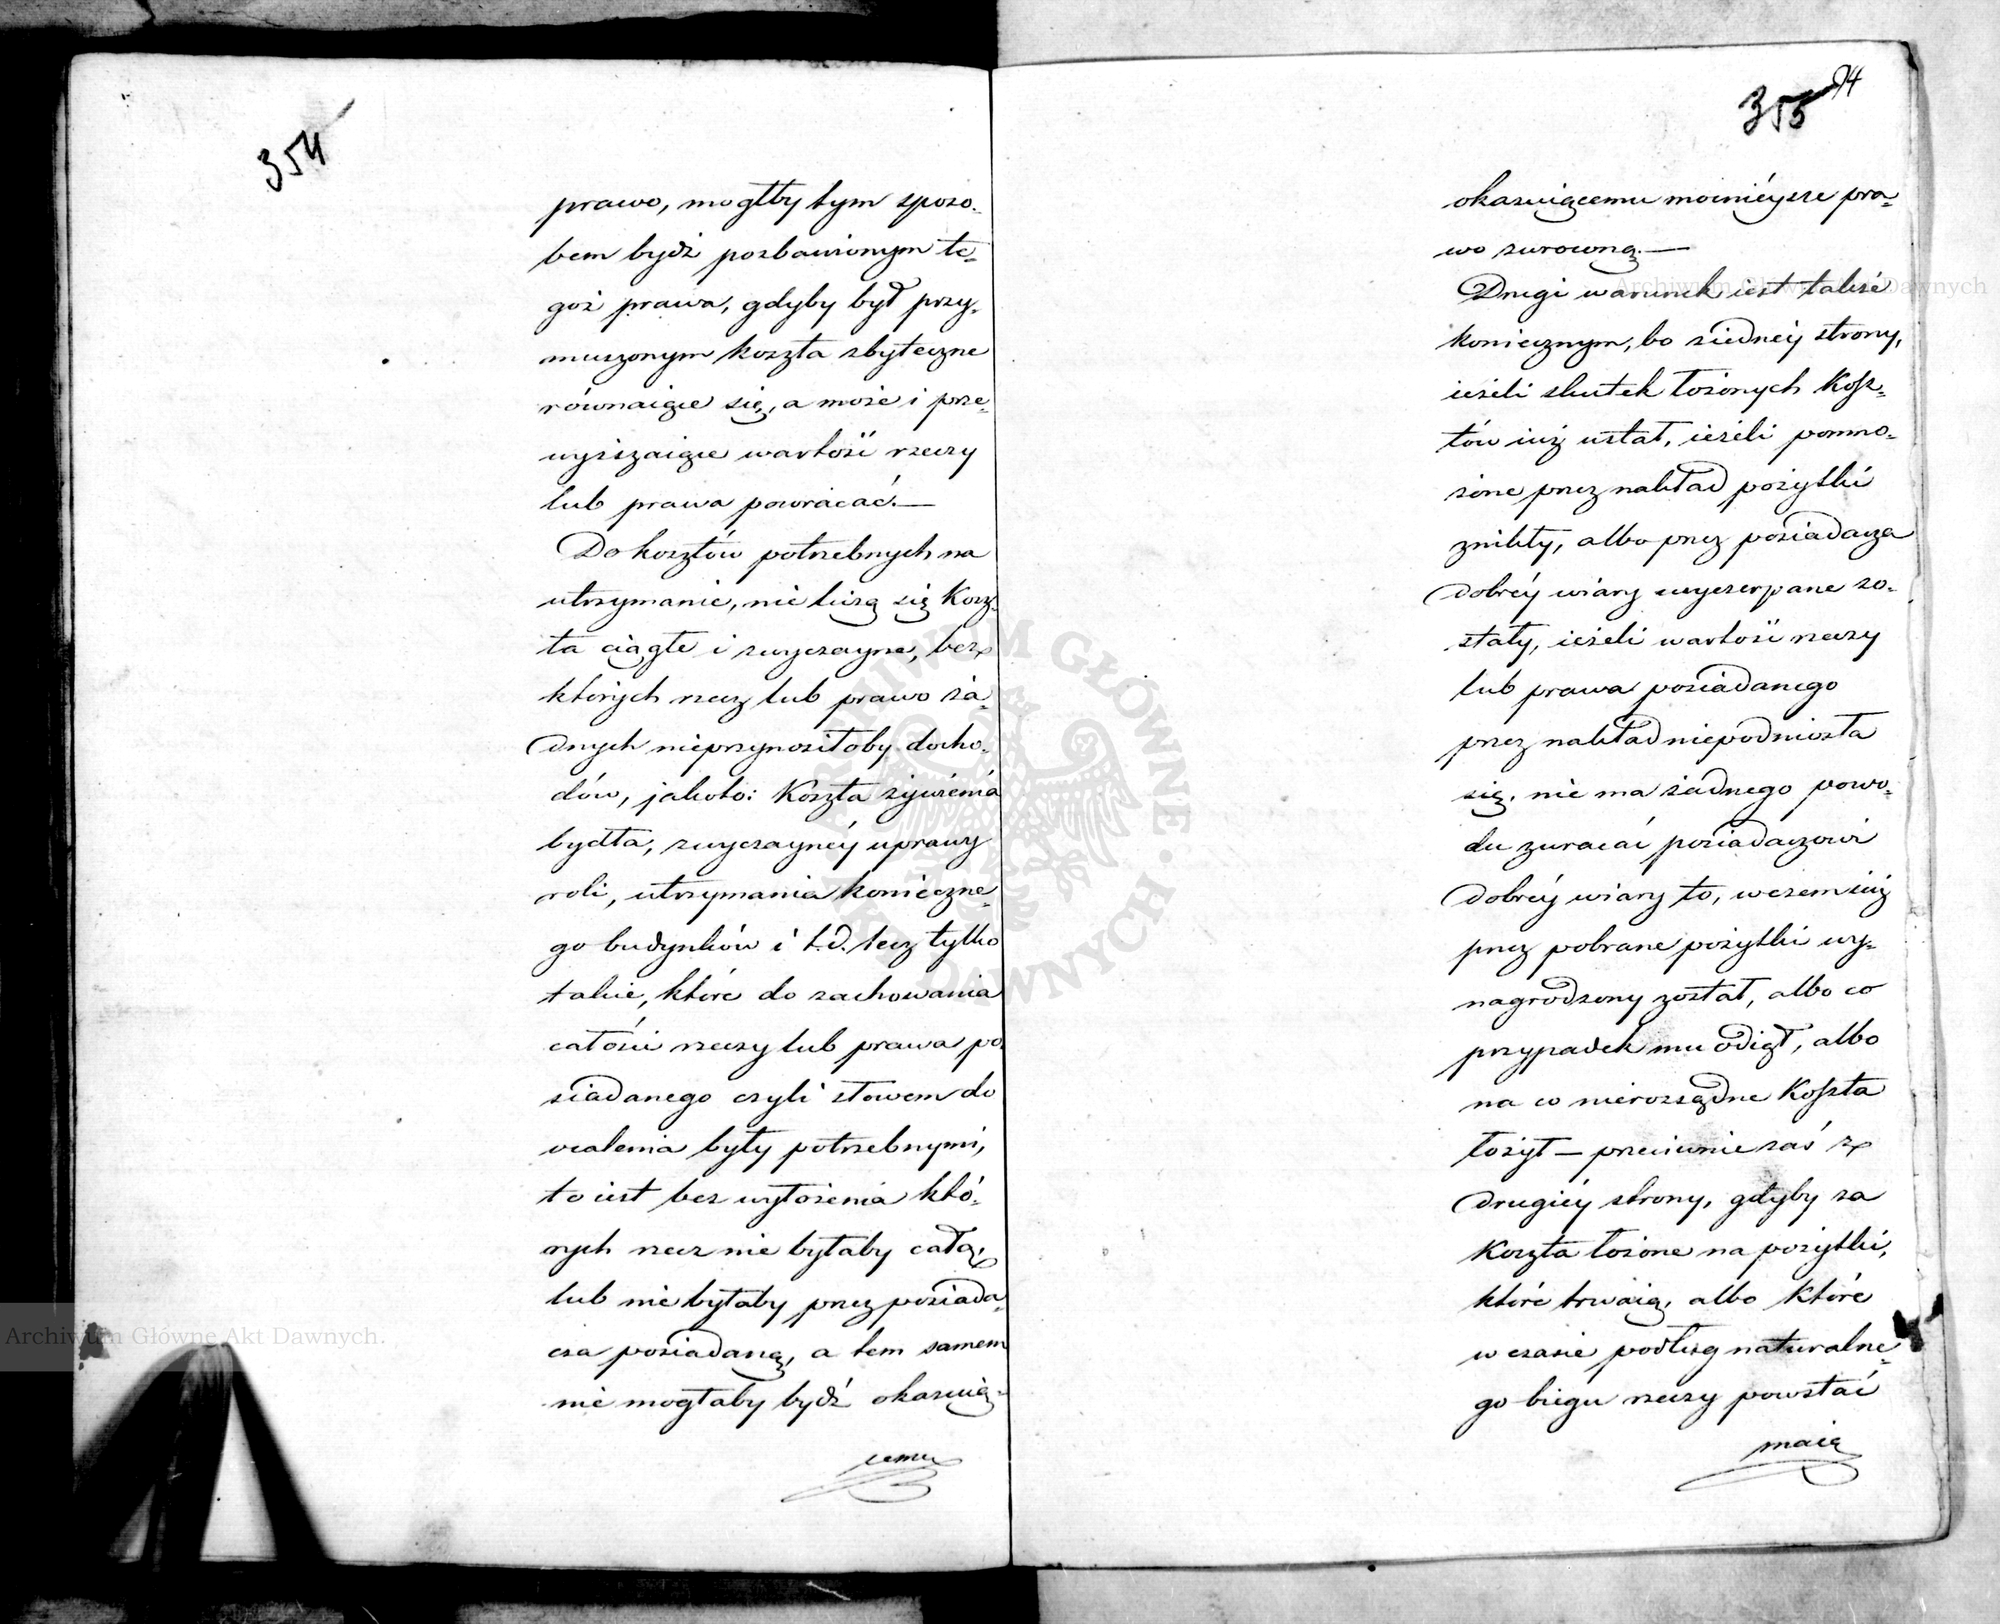 354
prawo, mogłby tym sposo=
bem bydź pozbawionym te=
goż prawa, gdyby był przy=
muszonym koszta zbyteczne
równaiące się, a może i prze=
wyższaiące wartość rzeczy
lub prawa powracać.—
Do kosztów potrzebnych na
utrzymanie, nie liczą się Kosz=
ta ciągłe i zwyczayne, bez
których rzecz lub prawo ża=
dnych nieprzynosiłoby docho=
dów, jakoto: Koszta żywienia
bydła, zwyczaynéy uprawy
roli, utrzymania konieczne=
go budynków i t.d. lecz tylko
takie, które do zachowania
całości rzeczy lub prawa po=
siadanego czyli słowem do
ocalenia były potrzebnymi,
to iest bez wyłożenia któ=
rych rzecz nie byłaby całą,
lub nie byłaby przez posiada=
cza posiadaną, a tem samem
nie mogłaby bydź okazuią=
cemu
355 94
okazuiącemu mocniéysze pra=
wo zwrowną.—
Drugi warunek iest także
koniecznym, bo ziednéy strony,
ieżeli skutek łożonych Kosz=
tów iuż ustał, ieżeli pomno=
żone przez nakład pożytki
znikły, albo przez posiadacza
dobréy wiary wyczerpane zo=
stały, ieżeli wartość rzeczy
lub prawa posiadanego
przez nakład niepodniosła
się, nie ma żadnego powo=
du zwracać posiadaczowi
dobréy wiary to, w czem iuż
przez pobrane pożytki wy=
nagrodzony został, albo co
przypadek mu odiął, albo
na co nierozsądne Koszta
łożył — przeciwnie zaś z
drugiéy strony, gdyby za
Koszta łożone na pożytki,
które trwaią, albo które
w czasie podług naturalne=
go biegu rzeczy powstać
maią
Archiwum Główne Akt Dawnych
Archiwum Główne Akt Dawnych.
ARCHIWUM GŁÓWNE AKT DAWNYCH